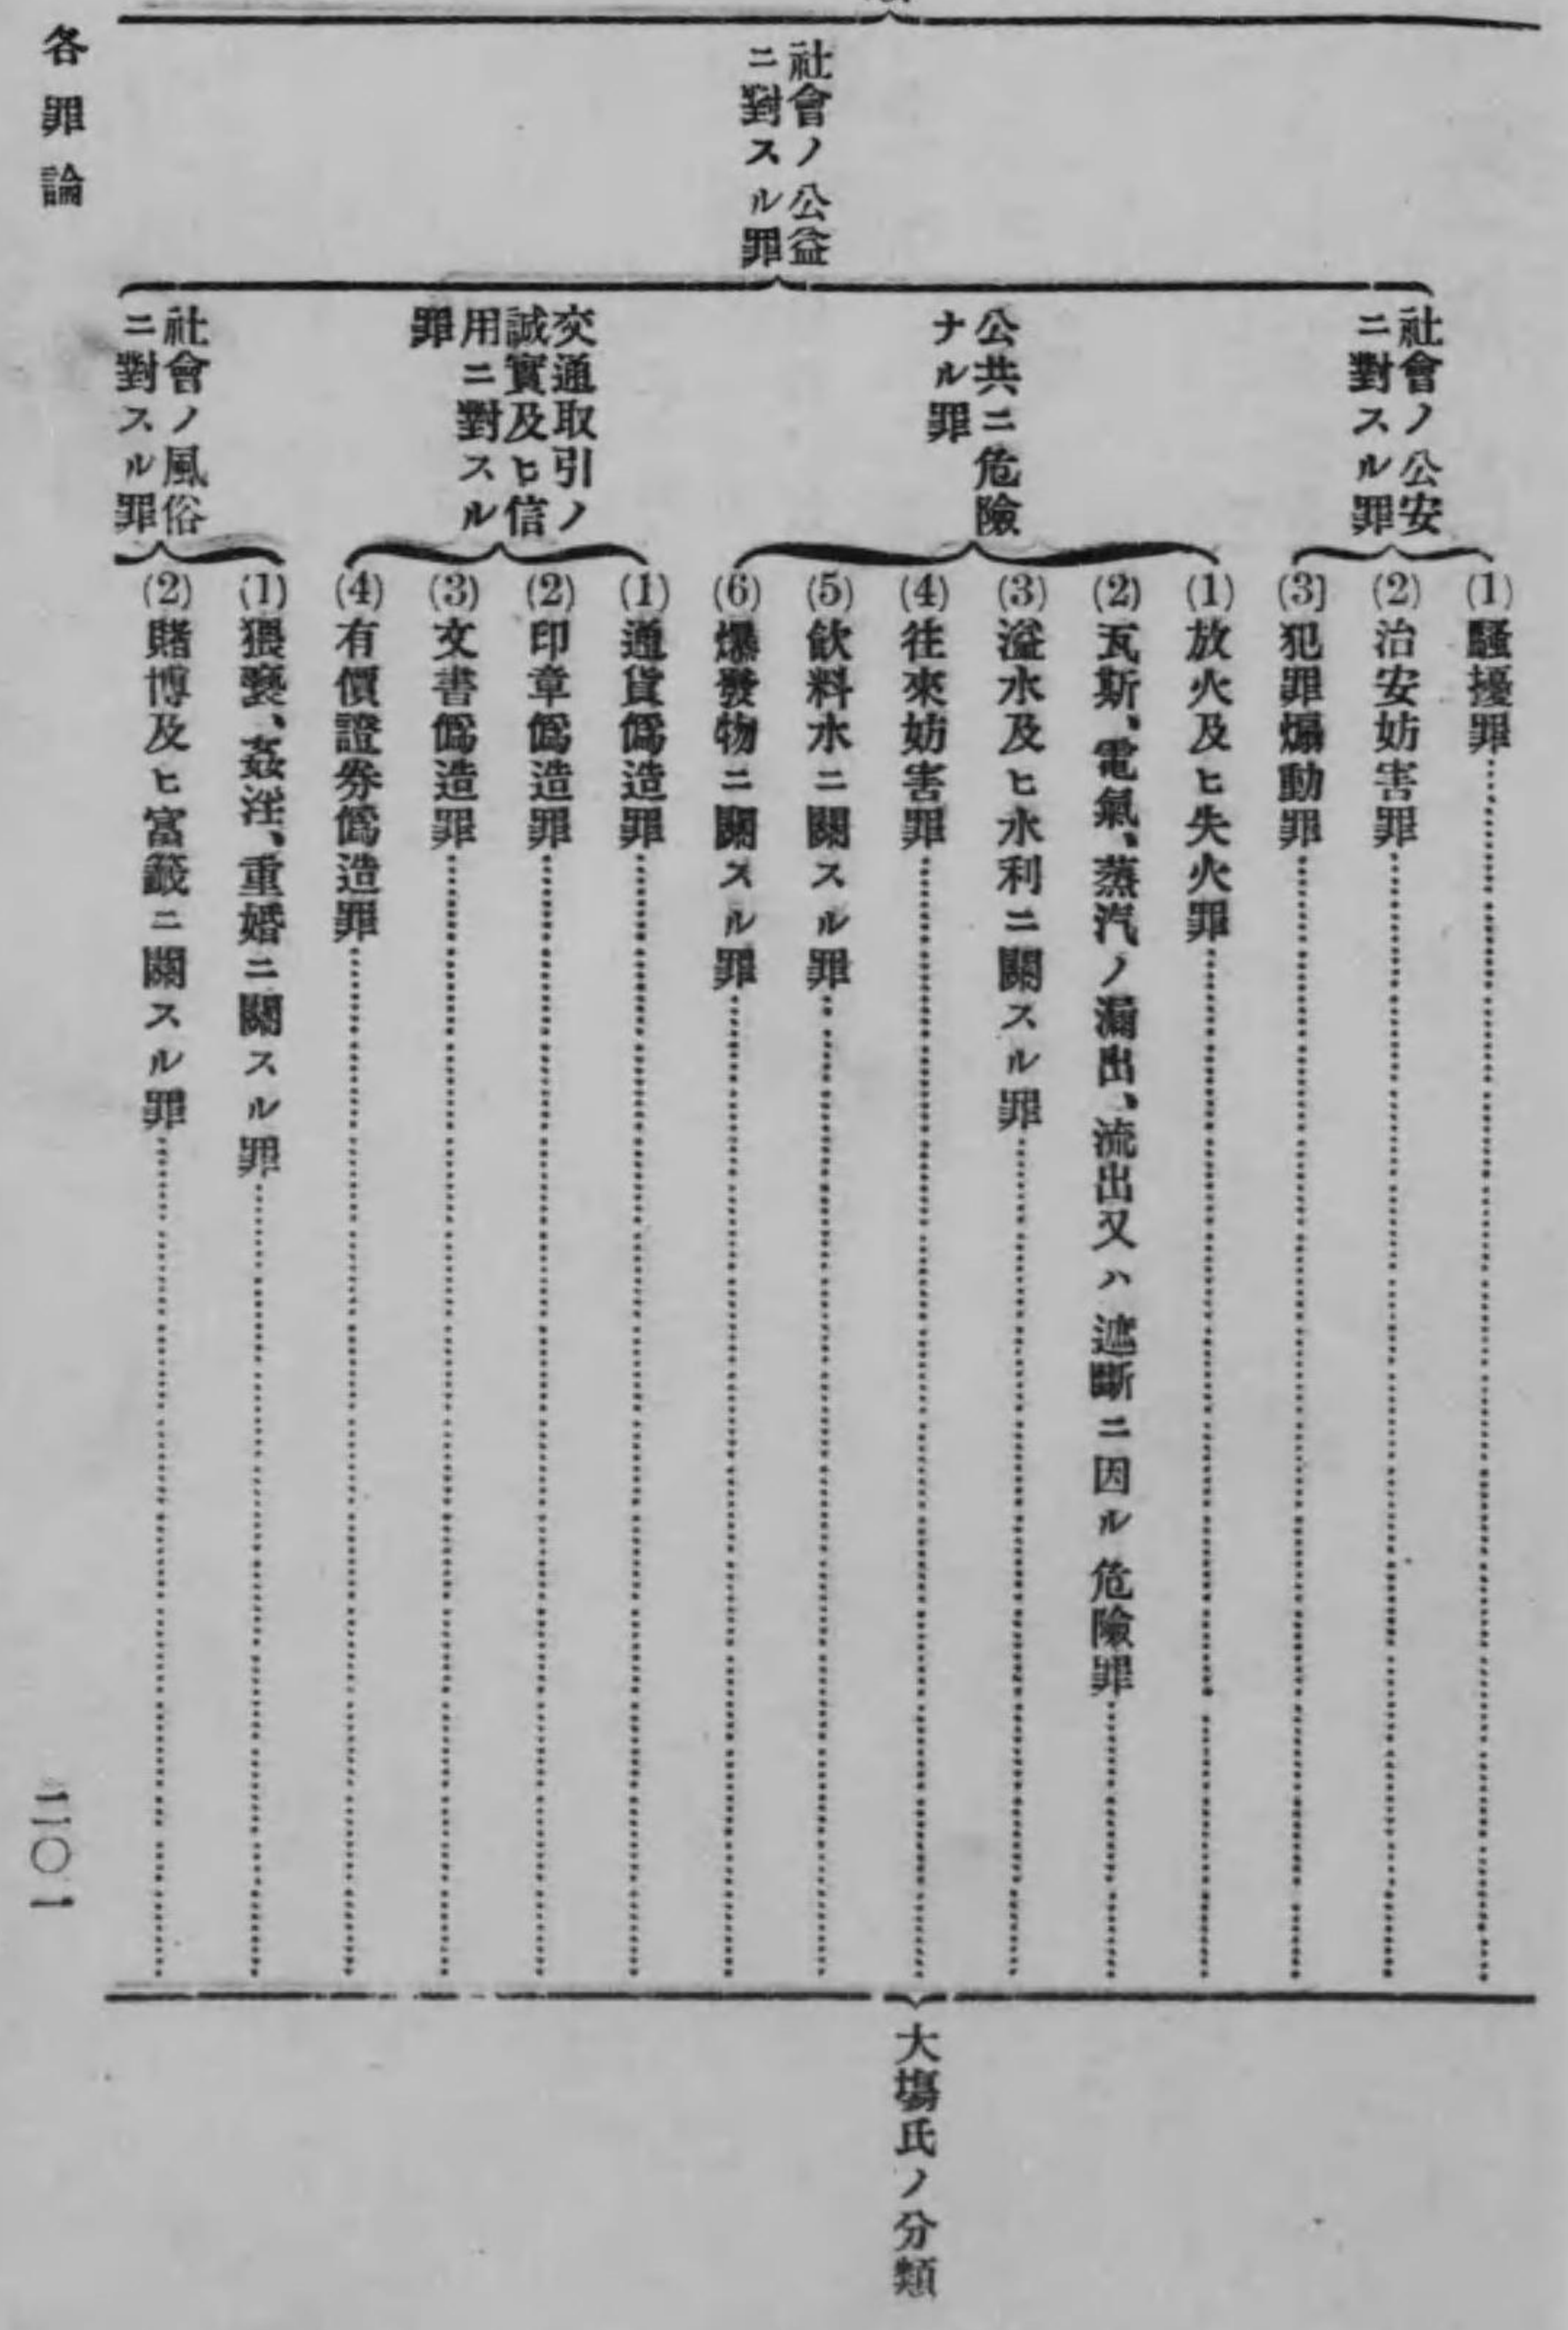 社會ノ公益
ニ對スル罪
社會ノ公安
ニ對スル罪
(1)騷擾罪
(2)治安妨害罪
(3]犯罪煽動罪
公共ニ危險
ナル罪
(1)放火及ヒ失火罪
(2)瓦斯、電氣、蒸汽ノ漏出、流出又ハ遮斷ニ因ル危險罪
(3)溢水及ヒ水利ニ關スル罪
(4)往來妨害罪
(5)飮料水ニ關スル罪
(6)爆發物ニ關スル罪
交通取引ノ
誠實及ヒ信
用ニ對スル
罪
(1)通貨僞造罪
(2)印章僞造罪
(3)文書僞造罪
(4)有價證券僞造罪
社會ノ風俗
ニ對スル罪
(1)猥褻、姦淫、重婚ニ關スル罪
(2)賭博及ヒ富籤ニ關スル罪
大塲氏ノ分類
各罪論
二〇一